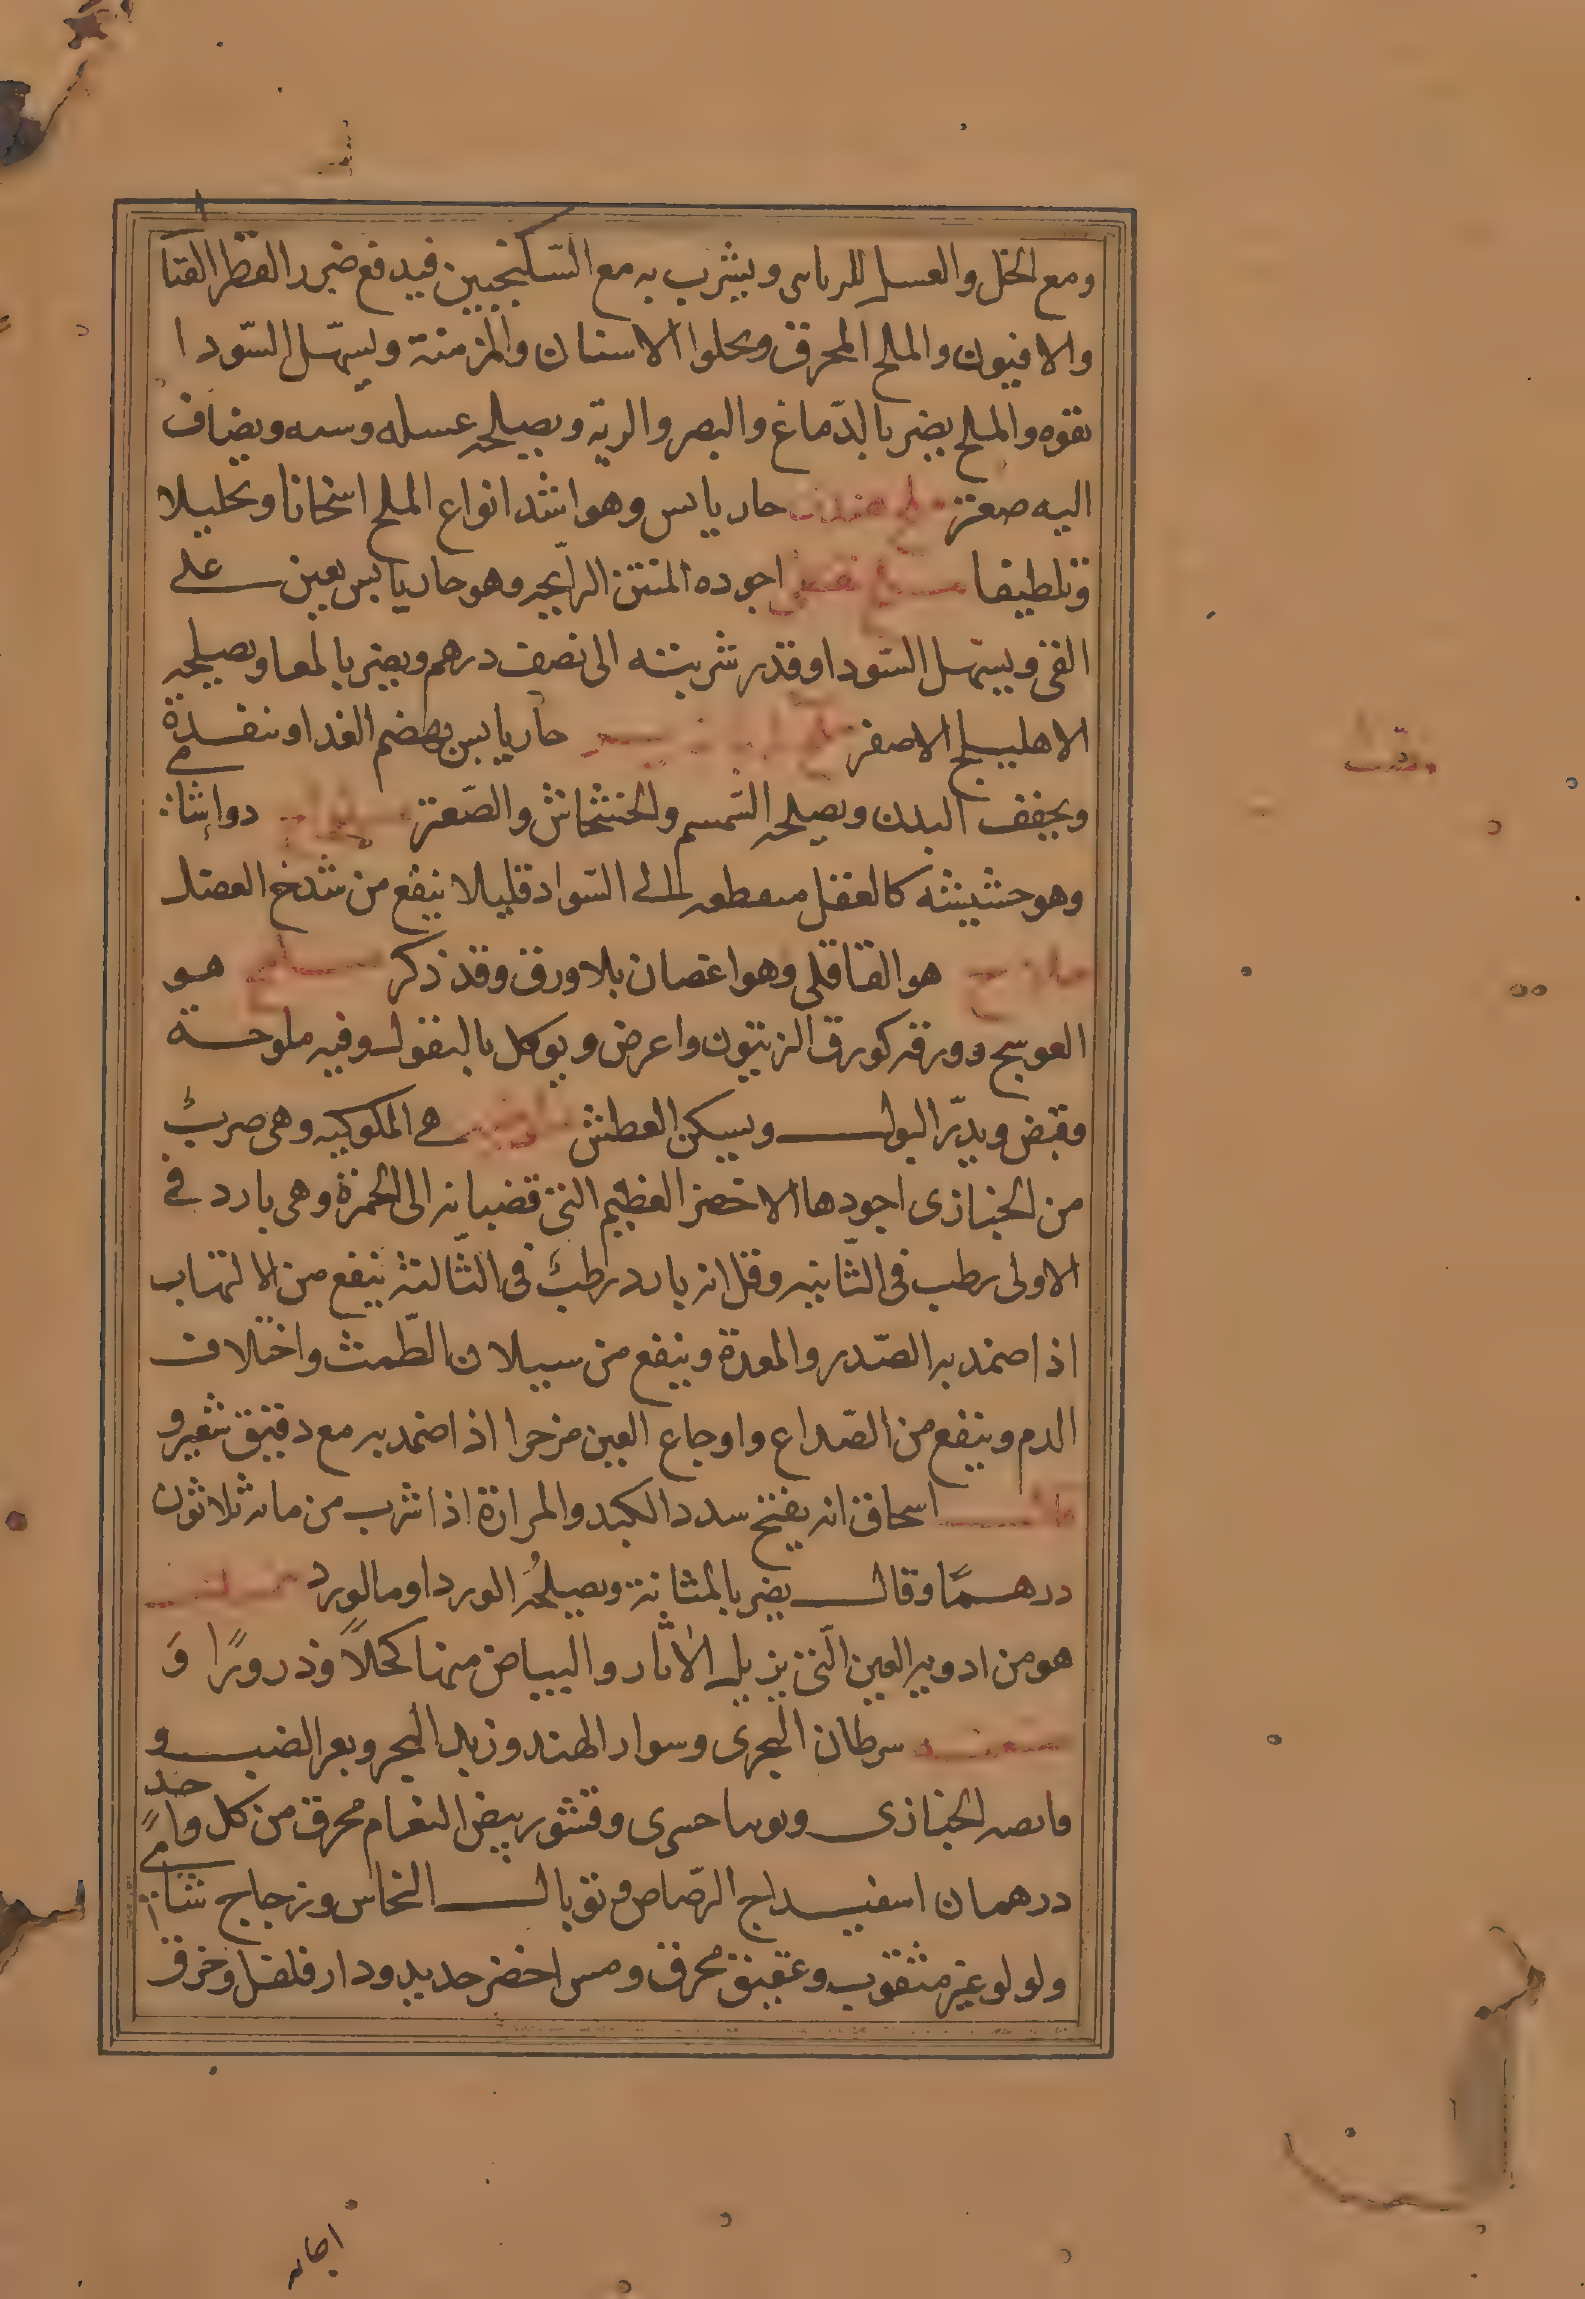 ومع الخل والعسل للرباسى ويشرب به مع السّكنجبين فيدفع ضرر الفطر القتا
والافيون والملح المحرق ويحلوا الاسنان والمزمنة ويسهّل السّودا
بقوه والملح يضر بالدّماغ والبصر والرية ويصلحه عسله وسمه ويضاف
اليه صعتر ملح هندى حار يابس وهو اشد انواع الملح اسخانا وتحليلا
وتلطيفا ملح نفطى اجوده المنتن الرايحه وهو حار يابس يعين على
القى ويسهل السّودا وقدر شربته الى نصف درهم ويضر بالمعا ويصلحه
الاهليلج الاصفر حار يابس يهضم الغدا وينفده
ويجفف البدن ويصلحه السّمسم والخشخاش والصّعتر دوا
وهو حشيشه كالعفل الى السّواد قليلا ينفع من شدخ العضل
ملاح هو القاقلى وهو اغصان بلا ورق وقد ذكر هو
العوسج وورقه كورق الزيتون واعرض ويوكل بالبقول وفيه ملوحة
وقبض ويدّر البول ويسكن العطش هى الملوكيه وهى ضربٌ
من الخبازى اجودها الاخضر العظيم التى قضبانه الى الحمرة وهى بارد فى
الاولى رطب فى الثّانيه وقل انه بارد رطبٌ فى الثّالثة ينفع من الالتهاب
اذا ضمد به الصّدر والمعدة وينفع من سيلان الطّمث واختلاف
الدم وينفع من الصّداع واوجاع العين من حرا اذا ضمد به مع دقيق شعير و
اسحاق انه يفتح سدد الكبد والمرارة اذا شرب من مائه ثلاثون
درهمًا وقال يضر بالمثانة ويصلحُه الورد او ما الورد
هو من ادويه العين الّتى يزيل الاثار والبياض منها كحلاً وذرورًا وَ
سرطان البحرى وسواد الهند وزبد البحر وبعر الضب و
الخبازى وقشور بيض النعام محرق من كل واحد
درهمان اسفيداج الرّصاص وتوبال النحاس وزجاج شامى
ولولو غير مثقوب وعقيق محرق ومس اخضر حديد ودار فلفل وخرق